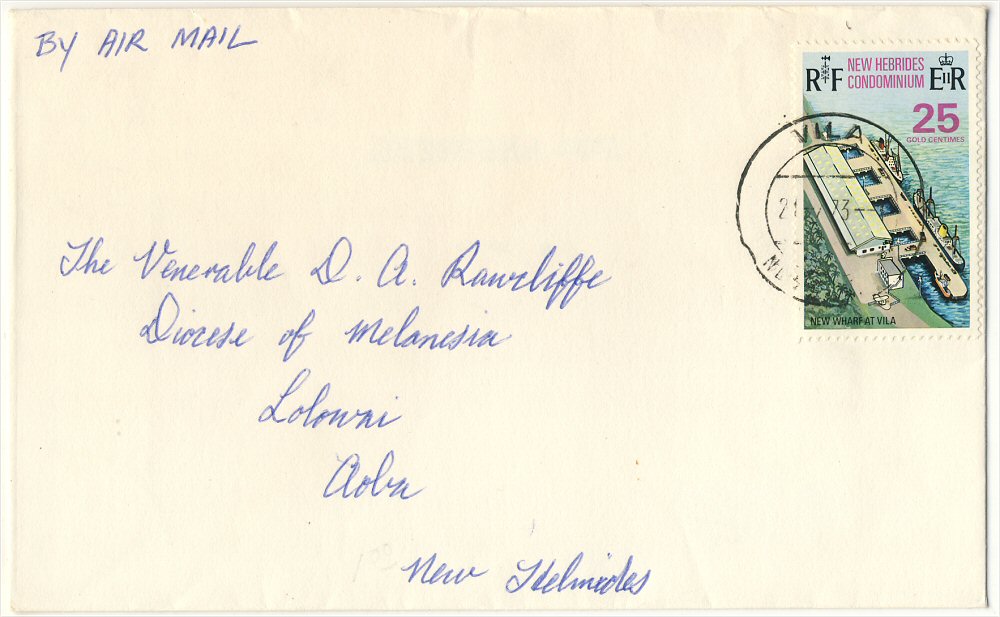 BY AIR MAIL
R F NEW HEBRIDES CONDOMINIUM E II R
25
GOLD CENTIMES
VILA
73
NEW WHARF AT VILA
The Venerable D. A. Rawcliffe
Diocese of Melanesia
Lolowai
Aoba
New Hebrides